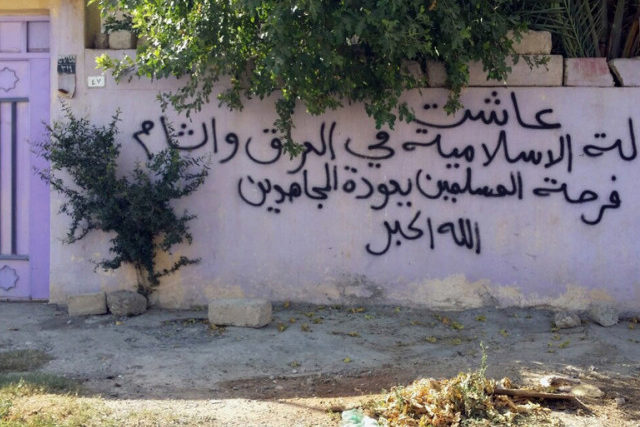 عاشت
لة الاسلامية في العراق و الشام
فرحة المسلمين بعودة المجاهدين
الله اكبر
٤٧